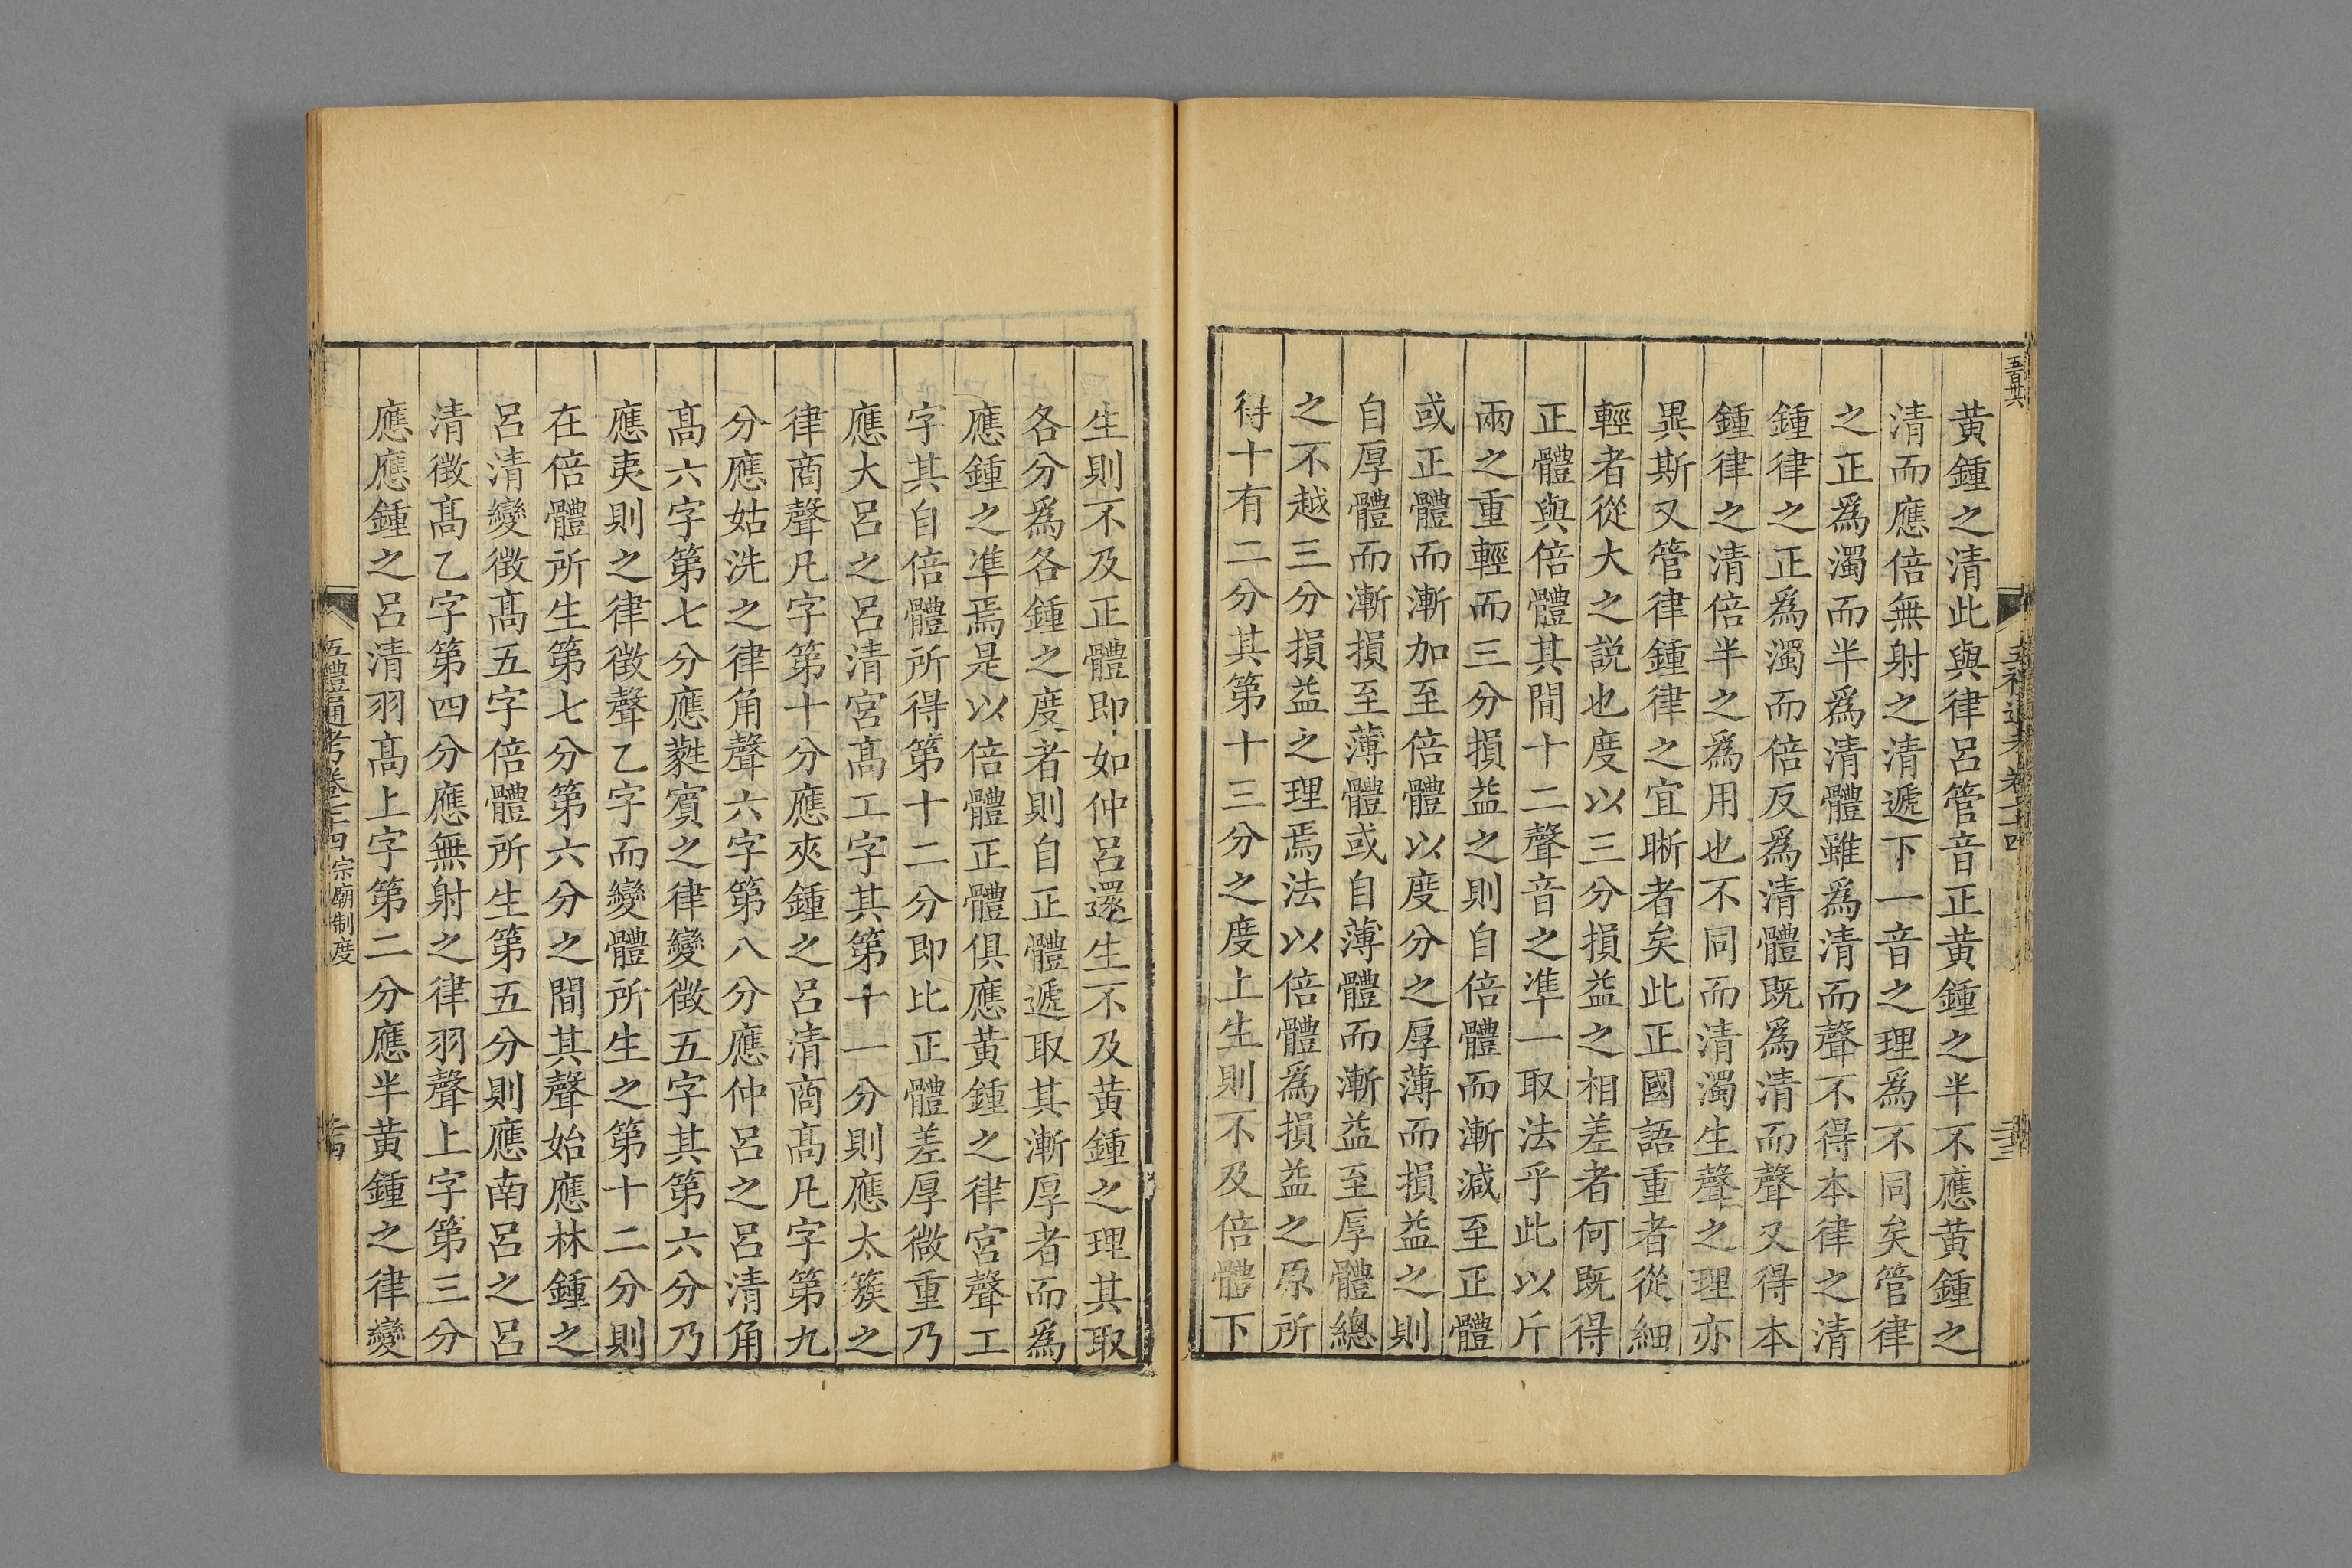 五百廿六
黃鍾之清此與律呂管音正黃鍾之半不應黃鍾之
清而應倍無射之清遞下一音之理爲不同矣管律
之正爲濁而半爲清體雖爲清而聲不得本律之清
鍾律之正爲濁而倍反爲清體旣爲清而聲又得本
鍾律之清倍半之爲用也不同而清濁生聲之理亦
異斯又管律鍾律之宜晰者矣此正國語重者從細
輕者從大之説也度以三分損益之相差者何旣得
正體與倍體其間十二聲音之凖一取法乎此以斤
兩之重輕而三分損益之則自倍體而漸減至正體
或正體而漸加至倍體以度分之厚薄而損益之則
自厚體而漸損至薄體或自薄體而漸益至厚體總
之不越三分損益之理焉法以倍體爲損益之原所
得十有二分其第十三分之度上生則不及倍體下
生則不及正體即如仲呂還生不及黃鍾之理其取
各分爲各鍾之度者則自正體遞取其漸厚者而爲
應鍾之凖焉是以倍體正體俱應黃鍾之律宮聲工
字其自倍體所得第十二分即比正體差厚微重乃
應大呂之呂清宮高工字其第十一分則應太簇之
律商聲凡字第十分應夾鍾之呂清商高凡字第九
分應姑洗之律角聲六字第八分應仲呂之呂清角
高六字第七分應蕤賓之律變徵五字其第六分乃
應夷則之律徵聲乙字而變體所生之第十二分則
在倍體所生第七分第六分之間其聲始應林鍾之
呂清變徵高五字倍體所生第五分則應南呂之呂
清徵高乙字第四分應無射之律羽聲上字第三分
應應鍾之呂清羽高上字第二分應半黃鍾之律變
五禮通考卷七十四 宗廟制度